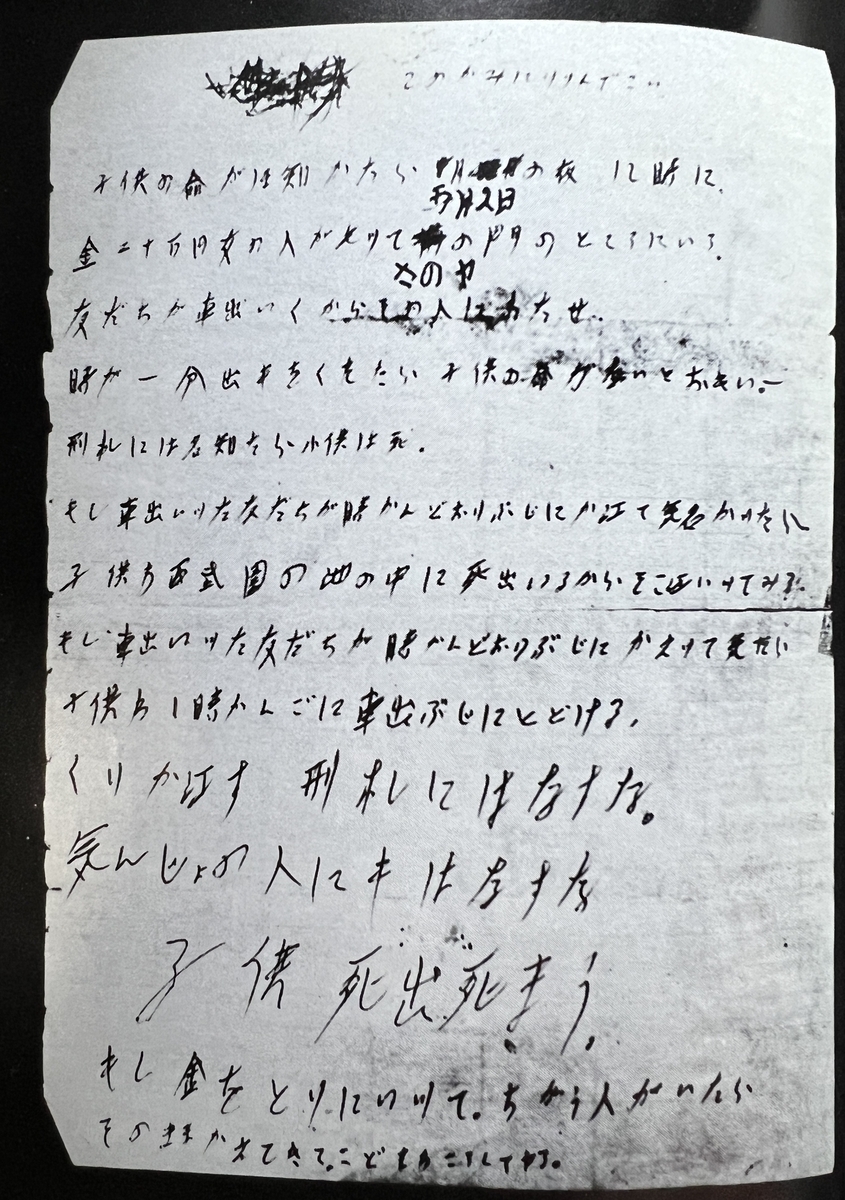 このかみにツツんでこい
子供の命がほ知かたら の夜12時に、
五月2日
金二十万円女の人がもツて の門のところにいろ。
さのヤ
友だちが車出いくからその人にわたせ。
時が一分出もをくれたら子供の命がないとおもい。ー
刑札には名知たら小供は死。
もし車出いツた友だちが時かんどおりぶじにか江て気名かツたら
子供わ西武園の池の中に死出いるからそこ江いツてみろ。
もし車出いツた友だちが時かんどおりぶじにかえツて気たら
子供わ1時かんごに車出ぶじにとどける、
くりか江す 刑札にはなすな。
気んじょの人にもはなすな
子供死出死まう。
もし金をとりにいツて。ちがう人がいたら
そのままかえてきて。こどもわころしてヤる。